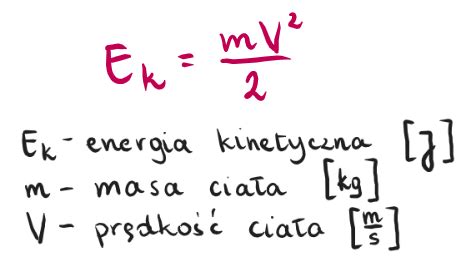 Eₖ = mV²/2
Eₖ - energia kinetyczna [J]
m - masa ciała [kg]
V - prędkość ciała [m/s]